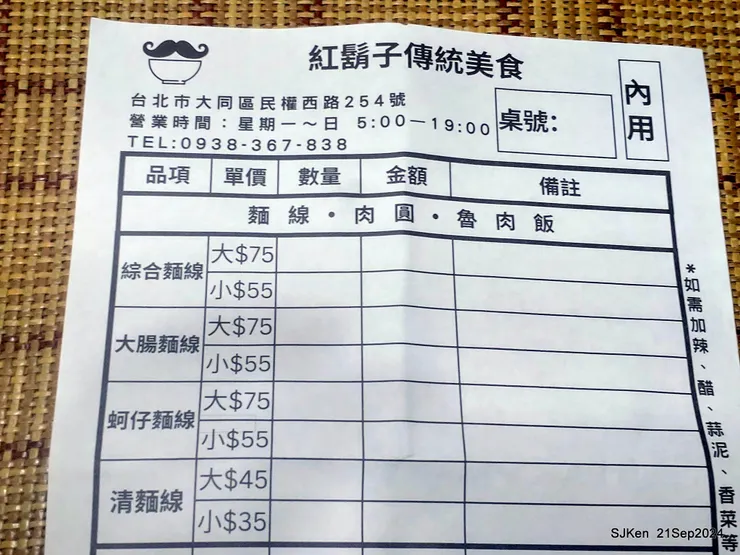 紅鬍子傳統美食
內用
台北市大同區民權西路254號
營業時間：星期一～日 5:00－19:00
TEL:0938-367-838
桌號：
品項 單價 數量 金額 備註
麵線・肉圓・魯肉飯
綜合麵線 大$75
小$55
大腸麵線 大$75
小$55
蚵仔麵線 大$75
小$55
清麵線 大$45
小$35
*如需加辣、醋、蒜泥、香菜等
SJKen 21Sep2024